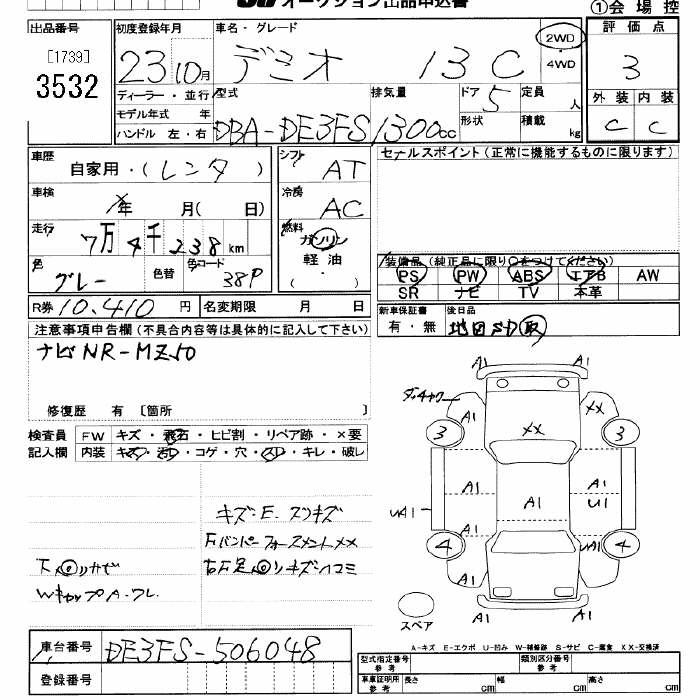 オークション出品申込書
①会場控
出品番号
[1739]
3532
初度登録年月
23 10月
車名・グレード
デミオ 13C
2WD
4WD
評価点
3
外装 内装
C C
ディーラー・並行
モデル年式 年
ハンドル 左・右
型式
DBA-DE3FS
排気量
1300cc
ドア 5
形状
定員 人
積載 kg
車歴
自家用・(レンタ)
シフト AT
セールスポイント(正常に機能するものに限ります)
車検
年 月( 日)
冷房 AC
走行
7万4千238km
燃料
ガソリン
軽油
( ・ )
色 グレー
色替
色コード 38P
装備品(純正品に限り○をつけてください)
PS PW ABS エアB AW
SR ナビ TV 本革
R券 10,410円
名変期限 月 日
新車保証書
有・無
後日品
地図SD取
注意事項申告欄(不具合内容等は具体的に記入して下さい)
ナビNR-MZ50
修復歴 有 [箇所 ]
検査員
記入欄
FW キズ・飛石・ヒビ割・リペア跡・×要
内装 キズ・汚レ・コゲ・穴・スレ・キレ・破レ
キズ・E・スリキズ
FバンパーフォースメントXX
WキャップA・ワレ
A1
A1
A1
XX
3
3
XX
A1
A1
A1
U1
A1
UA1
A1
4
4
A1
A1
A1
A1
スペア
A-キズ E-エクボ U-凹み W-補修跡 S-サビ C-腐食 XX-交換済
車台番号 DE3FS-506048
登録番号
型式指定番号 参考
類別区分番号 参考
車庫証明用 参考
長さ cm 幅 cm 高さ cm